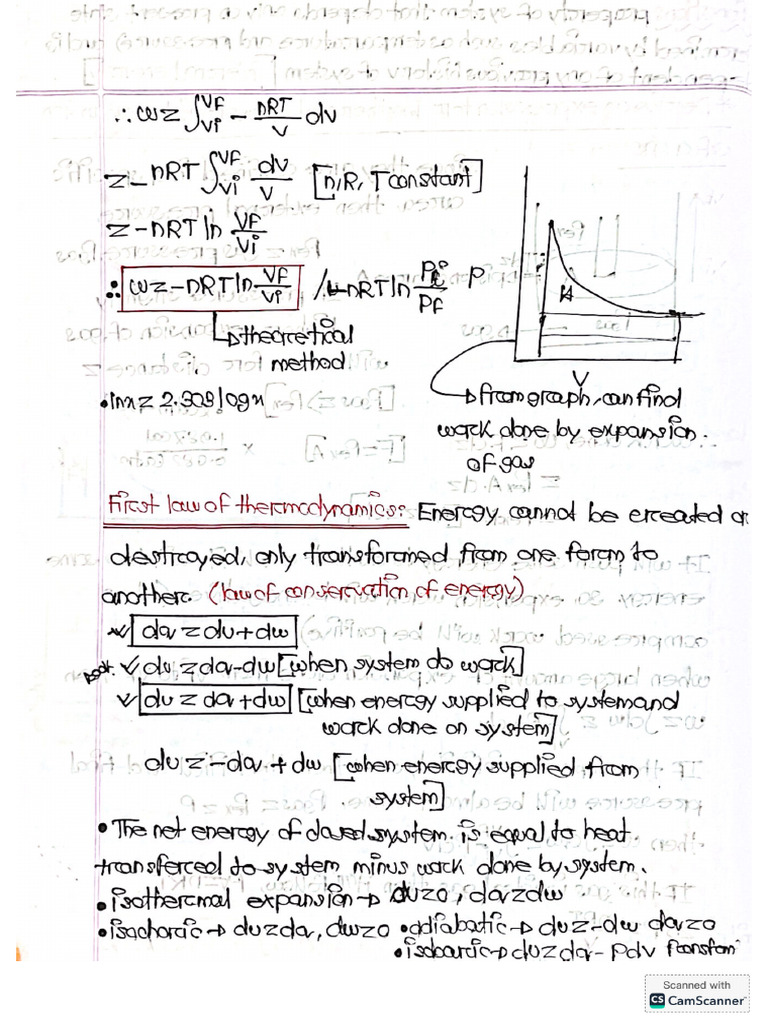 ∴ w = ∫Vi^Vf - nRT/V dv
= - nRT ∫Vi^Vf dv/V [n,R,T constant]
= - nRT ln Vf/Vi
∴ w = -nRT ln Vf/Vi / -nRT ln Pi/Pf
P
V
↳ theoretical
method
• lnx = 2.303 logx
→ from graph, can find
work done by expansion
of gas
First law of thermodynamics: Energy cannot be created or
destroyed, only transformed from one form to
another. (law of conservation of energy)
✓ dq = du + dw
✓ du = dq - dw [when system do work]
✓ du = dq + dw [when energy supplied to system and
work done on system]
du = -dq + dw [when energy supplied from
system]
• The net energy of closed system is equal to heat
transferred to system minus work done by system.
• isothermal expansion → du = 0, dq = dw
• isochoric → du = dq, dw = 0 • adiabatic → du = -dw dq = 0
• isobaric → du = dq - Pdv
Scanned with
CS CamScanner